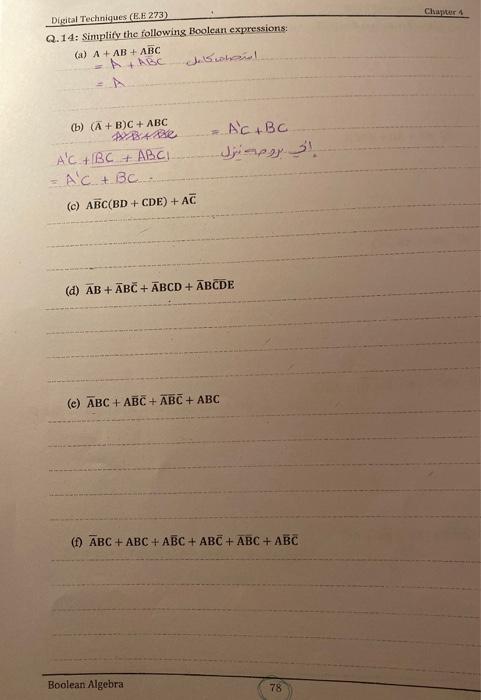 Digital Techniques (E.E 273)
Chapter 4
Q.14: Simplify the following Boolean expressions:
(a) A + AB + AB̅C
= A + ABC
= A
(b) (A̅ + B)C + ABC
= A'C + BC
A'C + BC + ABC
= A'C + BC .
(c) AB̅C(BD + CDE) + AC̅
(d) A̅B + A̅BC̅ + A̅BCD + A̅BC̅D̅E
(e) A̅BC + AB̅C̅ + A̅B̅C̅ + ABC
(f) A̅BC + ABC + AB̅C + ABC̅ + A̅BC + AB̅C̅
Boolean Algebra
78